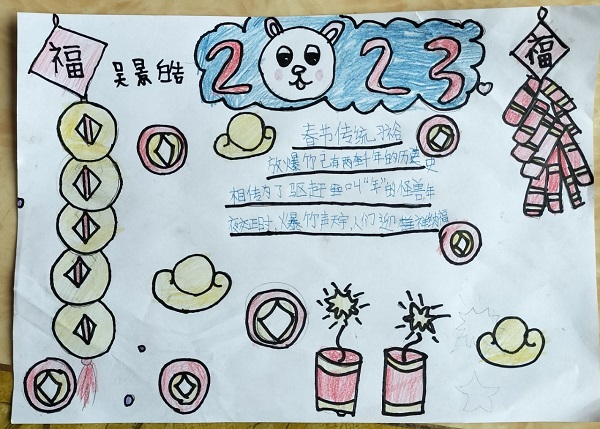 福
吴景皓
2023
福
春节传统习俗
放爆竹已有两千年的历史
相传为了驱赶 叫"年"的怪兽年
夜来临时,爆竹声天宇,人们迎 祥纳福